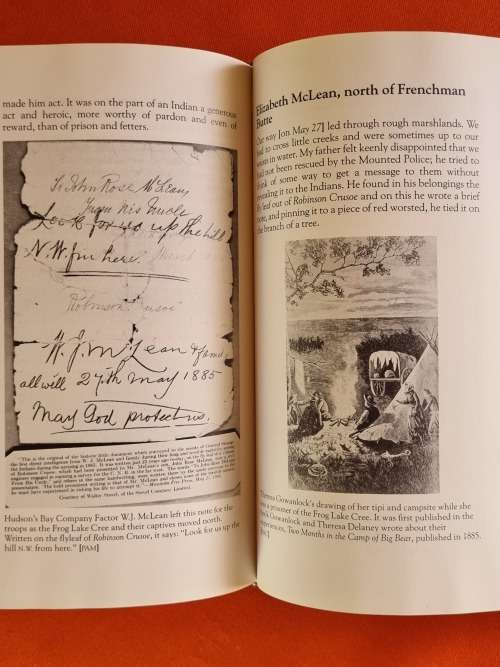 made him act. It was on the part of an Indian a generous
act and heroic, more worthy of pardon and even of
reward, than of prison and fetters.
To John Rose McLean
from his Uncle
Look for us up the hill
N.W. from here.
Robinson Crusoe
W. J. McLean & family
all well 27th May 1885
May God protect us.
"This is the original of the historic little document which conveyed to the scouts of General Strange
Courtesy of Walter Nursey, of the Social Customs, London.
Hudson's Bay Company Factor W.J. McLean left this note for the
troops as the Frog Lake Cree and their captives moved north.
Written on the flyleaf of Robinson Crusoe, it says: "Look for us up the
hill N.W. from here." [PAM]
Elizabeth McLean, north of Frenchman
Butte
Our way [on May 27] led through rough marshlands. We
had to cross little creeks and were sometimes up to our
in water. My father felt keenly disappointed that we
had not been rescued by the Mounted Police; he tried to
think of some way to get a message to them without
revealing it to the Indians. He found in his belongings the
fly leaf out of Robinson Crusoe and on this he wrote a brief
note, and pinning it to a piece of red worsted, he tied it on
the branch of a tree.
Theresa Gowanlock's drawing of her tipi and campsite while she
was a prisoner of the Frog Lake Cree. It was first published in the
book Gowanlock and Theresa Delaney wrote about their
experiences, Two Months in the Camp of Big Bear, published in 1885.